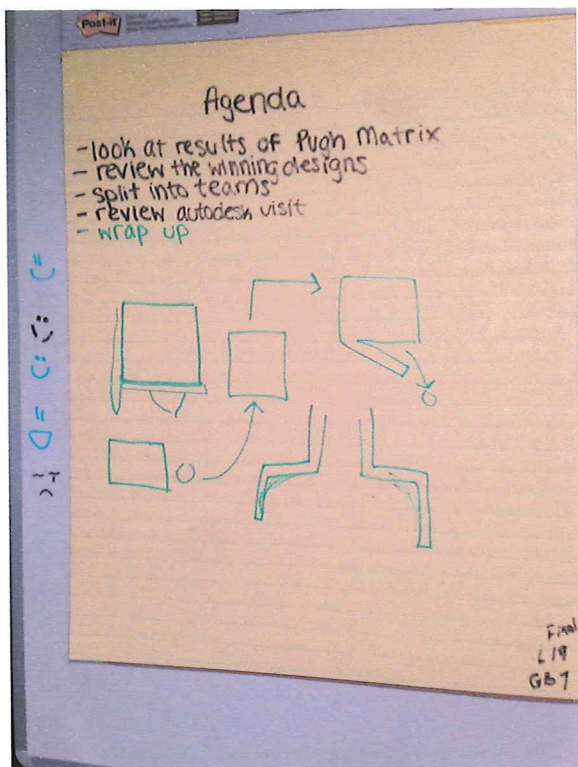 Post-it
Agenda
- look at results of Pugh Matrix
- review the winning designs
- split into teams
- review autodesk visit
- wrap up
Final
L19
GB7